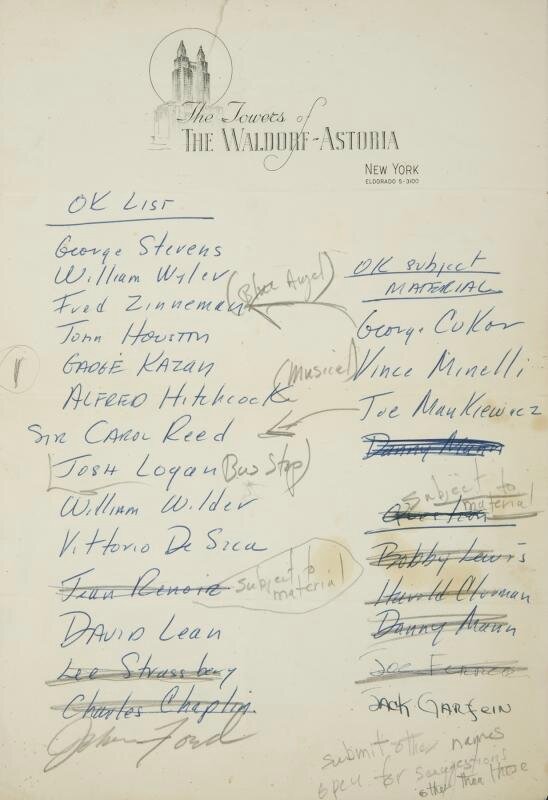 The Towers of
THE WALDORF-ASTORIA
NEW YORK
ELDORADO 5-3100
OK LIST
George Stevens
William Wyler
Fred Zinneman (Blue Angel)
John Houston
GADGE KAZAN
ALFRED Hitchcock
SIR CAROL Reed
JOSH Logan (Bus Stop)
William Wilder
Vittorio De Sica
Jean Renoir subject to
material
DAVID Lean
Lee Strassberg
Charles Chaplin
John Ford
OK subject
MATERIAL
George CuKor
(Musical) Vince Minelli
Joe Mankiewicz
Danny Mann
Subject to
material
Question
Bobby Lewis
Harold Clurman
Danny Mann
Joe
JACK GARFEIN
submit other names
open for suggestions
other than these